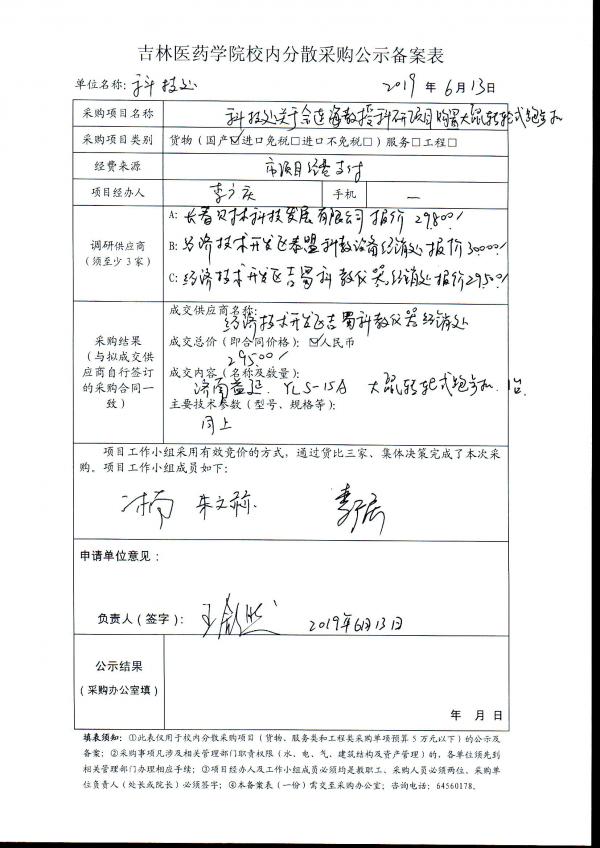 吉林医药学院校内分散采购公示备案表
单位名称：科技处 2019 年 6 月 13 日
采购项目名称 科技处关于 教授科研项目购买大鼠转轮式跑步机
采购项目类别 货物（国产☑进口免税□进口不免税□）服务□工程□
经费来源 市项目经费支付
项目经办人 李 手机 —
调研供应商
（须至少 3 家）
A: 长春贝林科技发展有限公司 报价 29800/
B: 经济技术开发区春盟科教设备经销处 报价 30000/
C: 经济技术开发区吉蜀科教仪器经销处 报价 29500/
采购结果
（与拟成交供
应商自行签订
的采购合同一
致）
成交供应商名称：
经济技术开发区吉蜀科教仪器经销处
成交总价（即合同价格）：☑人民币
29500/
成交内容（名称及数量）：
济南益延 YLS-15A 大鼠转轮式跑步机 1台
主要技术参数（型号、规格等）：
同上
项目工作小组采用有效竞价的方式，通过货比三家、集体决策完成了本次采
购。项目工作小组成员如下：
申请单位意见：
负责人（签字）： 王 2019年6月13日
公示结果
（采购办公室填）
年 月 日
填表须知：①此表仅用于校内分散采购项目（货物、服务类和工程类采购单项预算 5 万元以下）的公示及
备案；②采购事项凡涉及相关管理部门职责权限（水、电、气、建筑结构及资产管理）的，各单位须先到
相关管理部门办理相应手续；③项目经办人及工作小组成员必须均是教职工、采购人员必须两位、采购单
位负责人（处长或院长）必须签字；④本备案表（一份）需交至采购办公室；咨询电话：64560178。